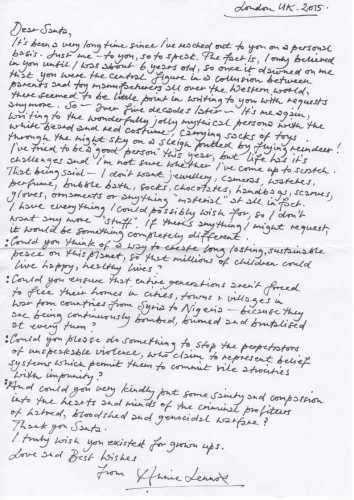 London UK. 2015.
Dear Santa,
It's been a very long time since I've reached out to you on a personal
basis. Just me – to you, so to speak. The fact is, I only believed
in you until I was about 6 years old, so once it dawned on me
that you were the central figure in a collusion between
parents and toy manufacturers all over the Western world,
there seemed to be little point in writing to you with requests
anymore. So – Over five decades later – It's me again,
writing to the wonderfully jolly mythical person with the
white beard and red costume, carrying sacks of toys
through the night sky on a sleigh pulled by flying reindeer!
I've tried to be a "good person" this year, but life has it's
challenges and I'm not sure whether I've come up to scratch.
That being said – I don't want jewellery, cameras, watches,
perfume, bubble bath, socks, chocolates, handbags, scarves,
gloves, ornaments or anything "material" at all in fact.
I have everything I could possibly wish for, so I don't
want any more "stuff". If there's anything I might request,
it would be something completely different.
: Could you think of a way to create long lasting, sustainable
peace on this planet, so that millions of children could
live happy, healthy lives?
: Could you ensure that entire generations aren't forced
to flee their homes in cities, towns & villages in
war torn countries from Syria to Nigeria – because they
are being continuously bombed, burned and brutalised
at every turn?
: Could you please do something to stop the perpetrators
of unspeakable violence, who claim to represent belief
systems which permit them to commit vile atrocities
with impunity?
: And could you very kindly put some sanity and compassion
into the hearts and minds of the criminal profiteers
of hatred, bloodshed and genocidal warfare?
Thank you Santa.
I truly wish you existed for grown ups.
Love and Best Wishes
From Annie Lennox